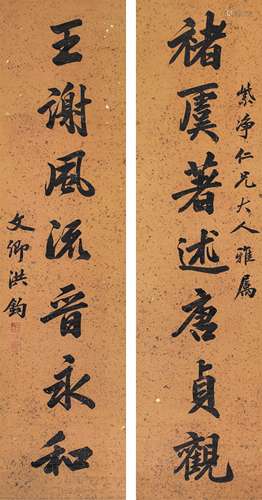 紫淨仁兄大人雅属
褚虞著述唐貞觀
王謝風流晉永和
文卿洪鈞